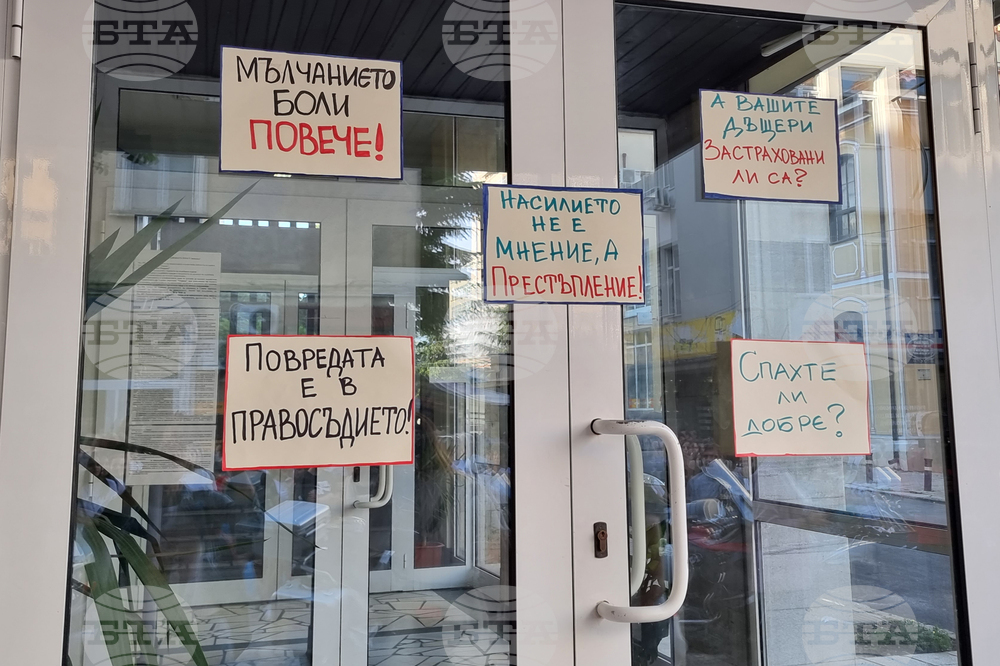 МЪЛЧАНИЕТО
БОЛИ
ПОВЕЧЕ!
А ВАШИТЕ
ДЪЩЕРИ
ЗАСТРАХОВАНИ
ЛИ СА?
НАСИЛИЕТО
НЕ Е
МНЕНИЕ, А
ПРЕСТЪПЛЕНИЕ!
ПОВРЕДАТА
Е В
ПРАВОСЪДИЕТО!
СПАХТЕ
ЛИ
ДОБРЕ?
БТА
БТА
БТА
БТА
БТА
БТА
БТА
БТА
БТА